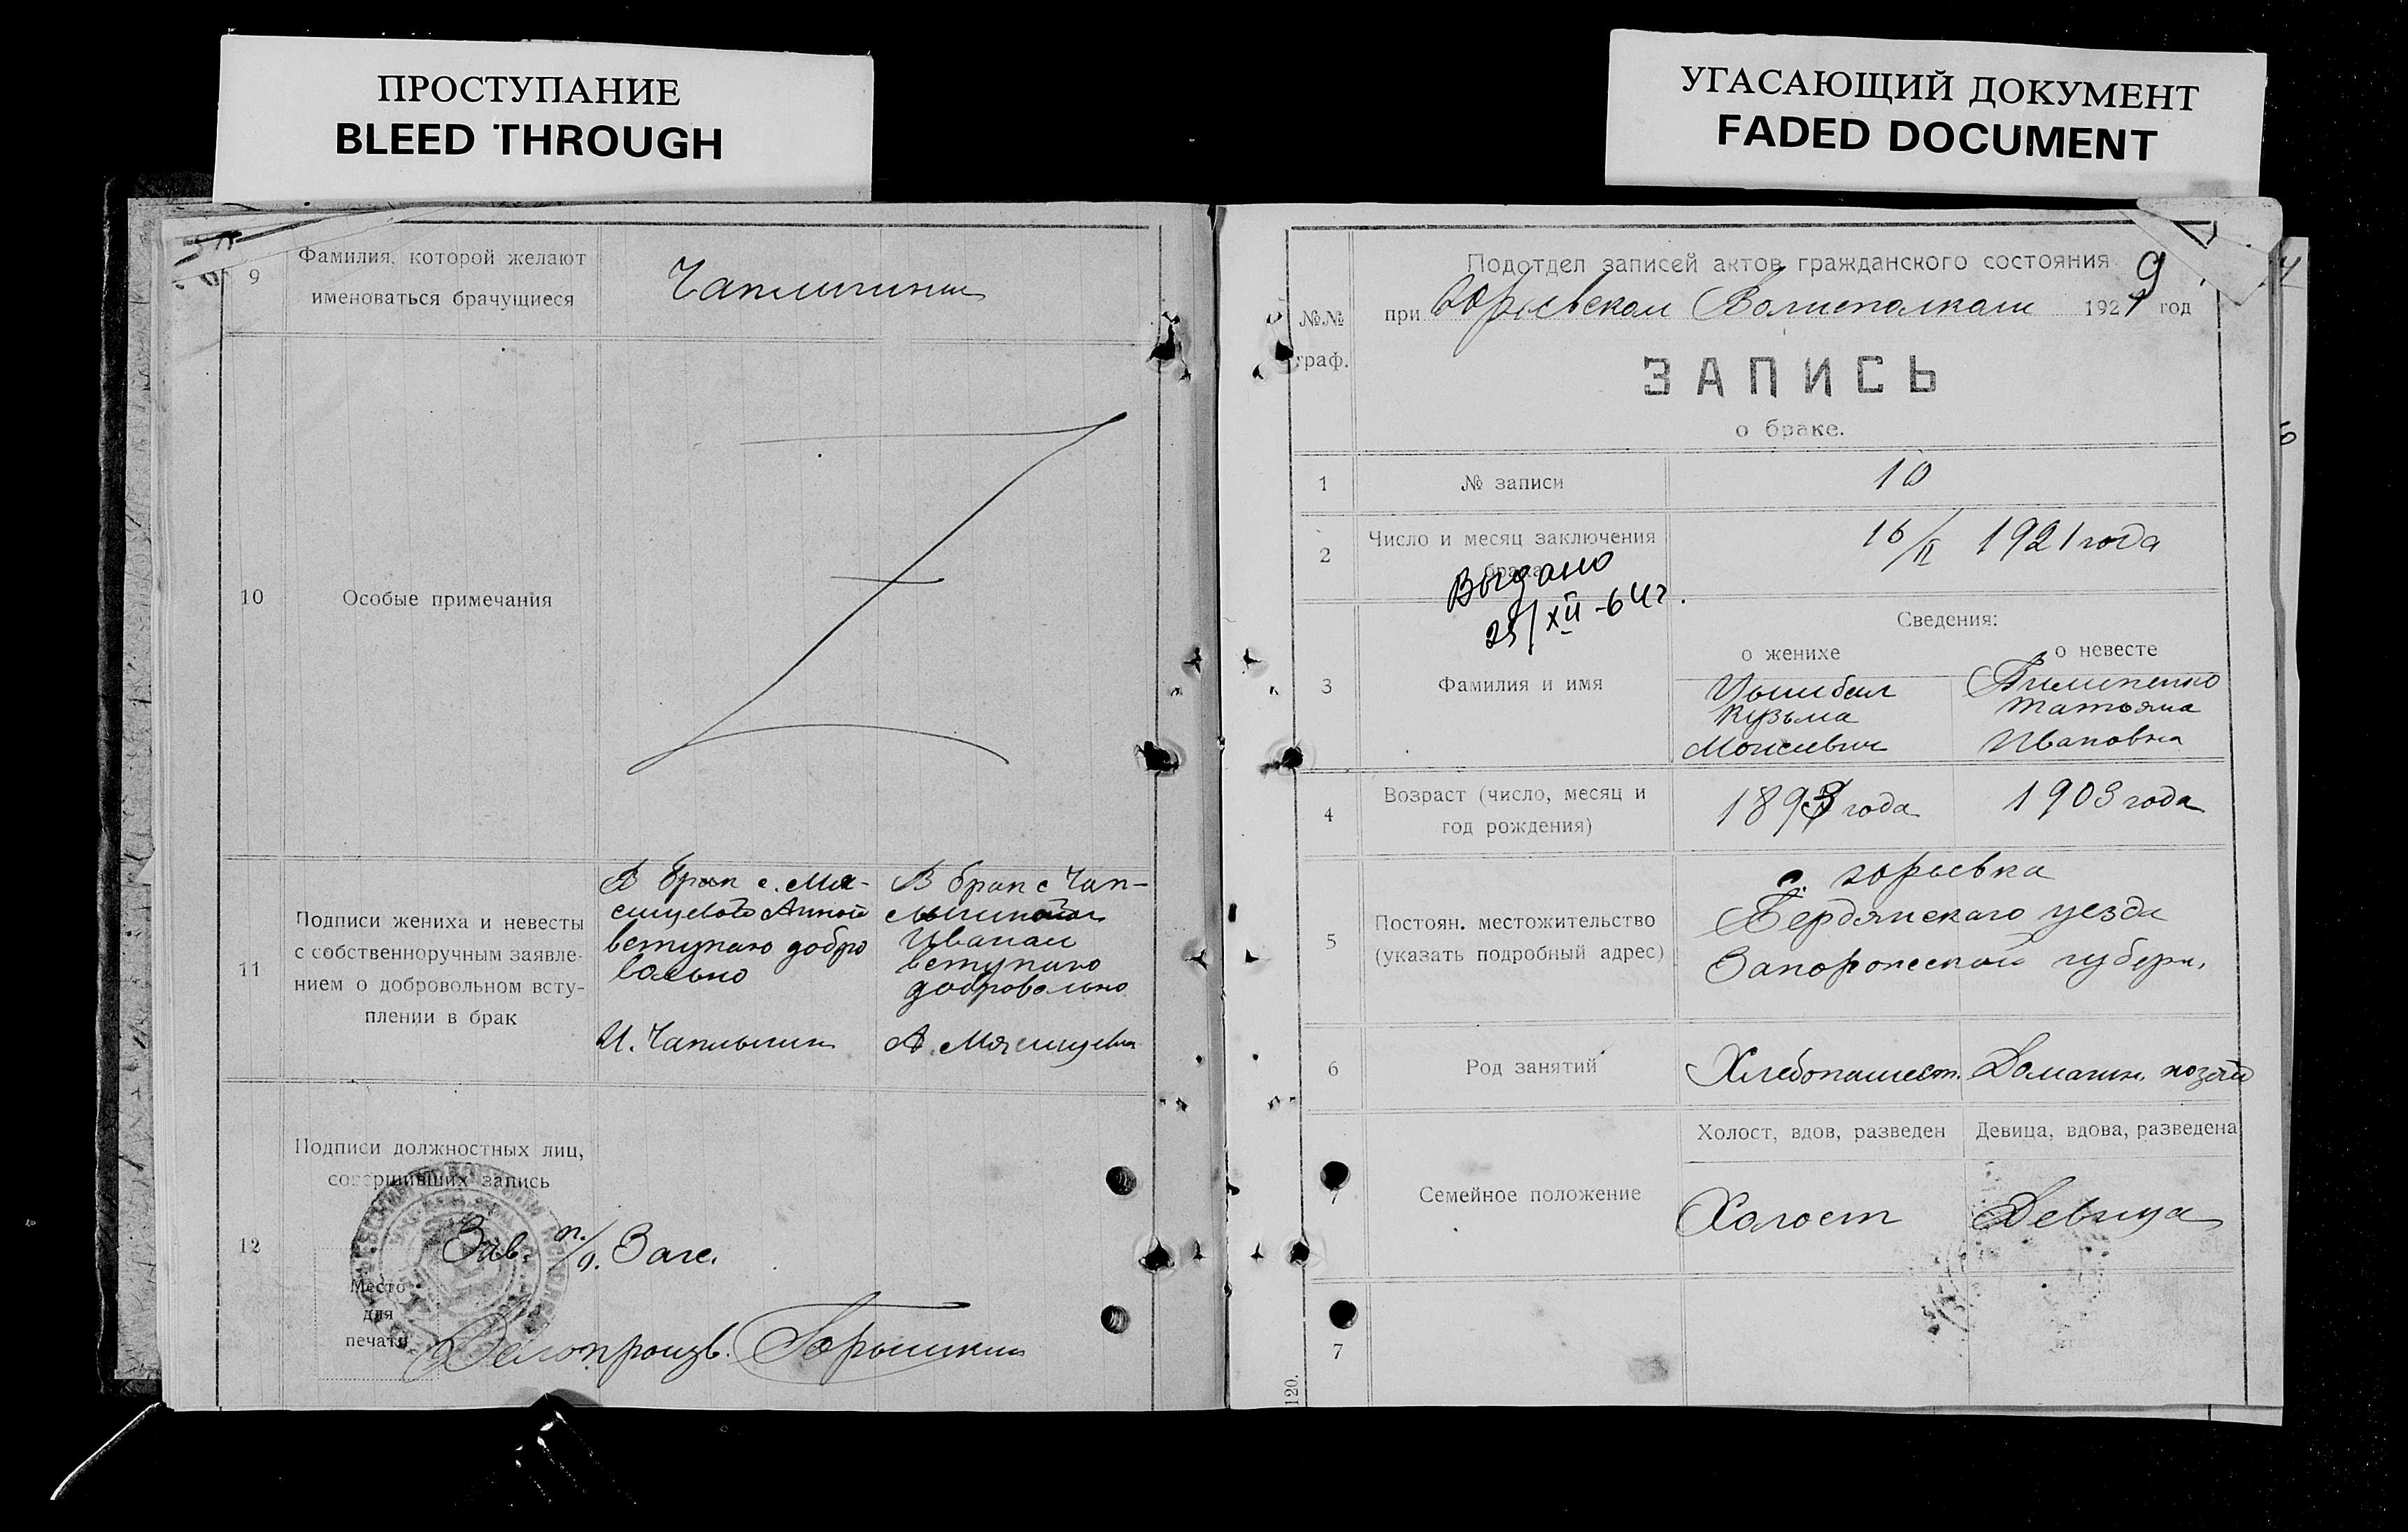 ПРОСТУПАНИЕ
BLEED THROUGH
УГАСАЮЩИЙ ДОКУМЕНТ
FADED DOCUMENT
9
Фамилия, которой желают
именоваться брачущиеся
10
Особые примечания
11
Подписи жениха и невесты
с собственноручным заявле-
нием о добровольном всту-
плении в брак
В брак с Мя-
сищевой Анной
вступаю добро
вольно
И. Чаплыгин
В брак с Чап-
лыгиным
Иваном
вступаю
добровольно
А. Мясищева
12
Подписи должностных лиц,
совершивших запись
Зав. п/о. Загс.
Место
для
печати
Делопроизв.
№№
граф.
Подотдел записей актов гражданского состояния
при Юрьевском 1921 год
9
ЗАПИСЬ
о браке.
1
№ записи
10
2
Число и месяц заключения
брака
16/II 1921 года
Выдано
25/XII-64г.
3
Фамилия и имя
Сведения:
о женихе
о невесте
Цымбал
Кузьма
Моисеевич
Пилипенко
Татьяна
Ивановна
4
Возраст (число, месяц и
год рождения)
1893 года
1903 года
5
Постоян. местожительство
(указать подробный адрес)
с. Юрьевка
Бердянскаго уезда
Запорожской губерн.
6
Род занятий
Хлебопашест.
Домашн. хозяй
7
Семейное положение
Холост, вдов, разведен
Девица, вдова, разведена
Холост
Девица
7
120.